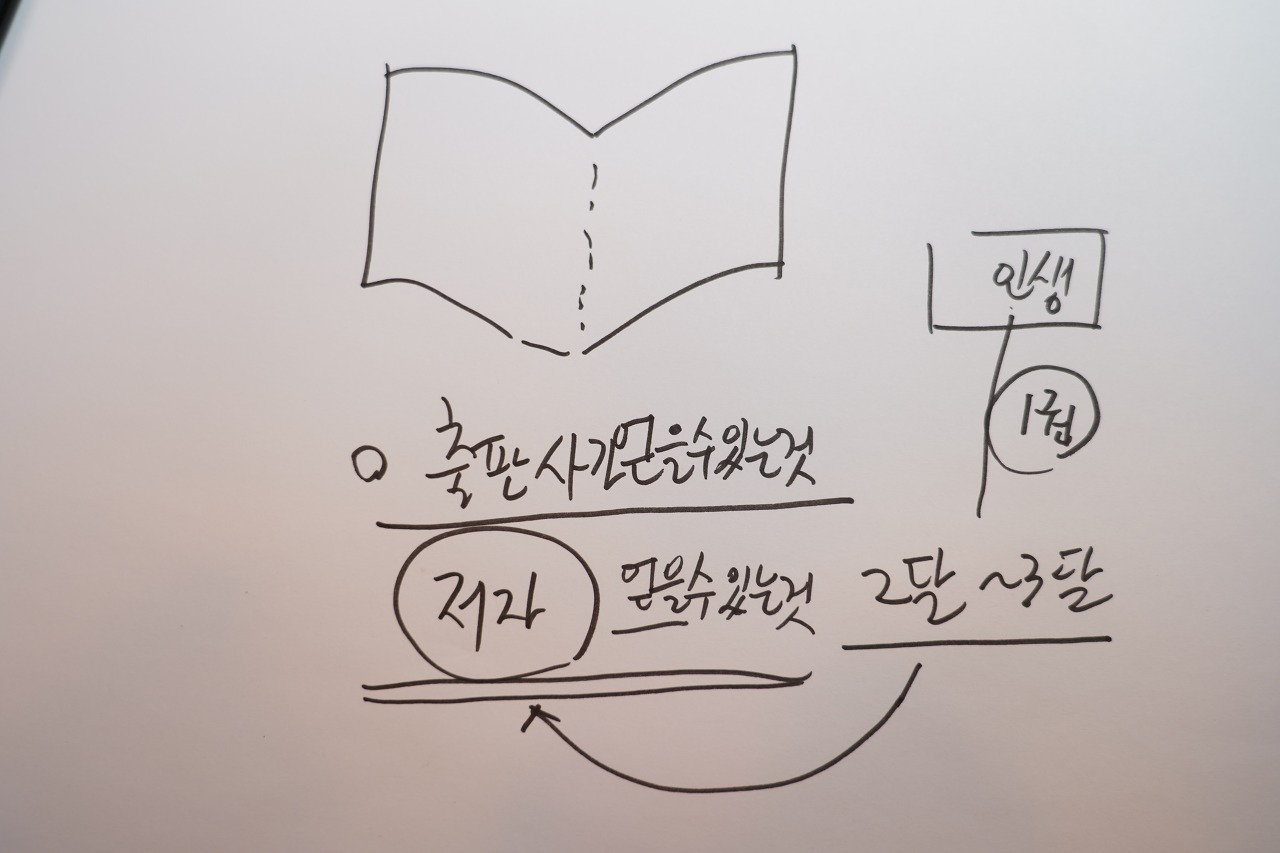 인생
1권
출판사가 얻을 수 있는 것
저자 얻을 수 있는 것 2달 ~3달